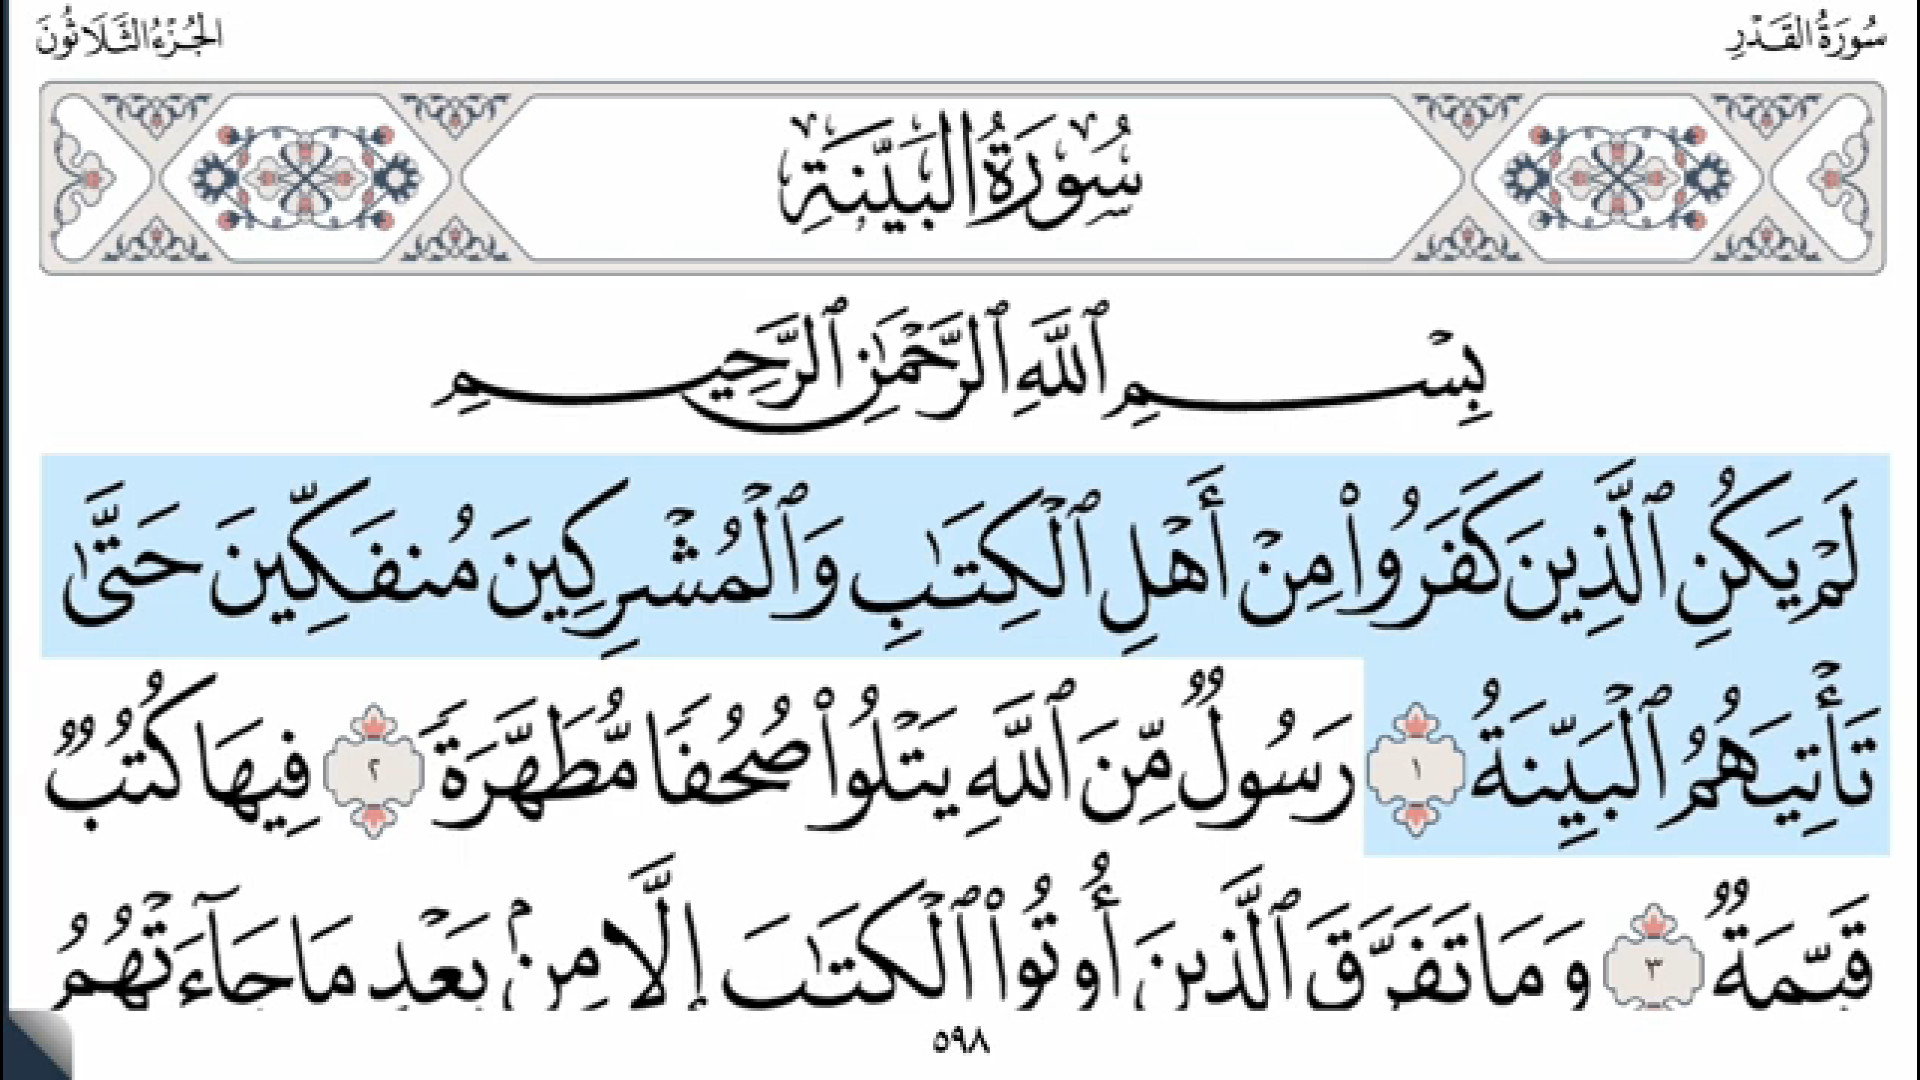 سُورَةُ القَدْرِ
الجُزْءُ الثَّلَاثُونَ
سُورَةُ البَيِّنَةِ
بِسْمِ ٱللَّهِ ٱلرَّحْمَٰنِ ٱلرَّحِيمِ
لَمْ يَكُنِ ٱلَّذِينَ كَفَرُوا۟ مِنْ أَهْلِ ٱلْكِتَٰبِ وَٱلْمُشْرِكِينَ مُنفَكِّينَ حَتَّىٰ
تَأْتِيَهُمُ ٱلْبَيِّنَةُ ١ رَسُولٌ مِّنَ ٱللَّهِ يَتْلُوا۟ صُحُفًا مُّطَهَّرَةً ٢ فِيهَا كُتُبٌ
قَيِّمَةٌ ٣ وَمَا تَفَرَّقَ ٱلَّذِينَ أُوتُوا۟ ٱلْكِتَٰبَ إِلَّا مِنۢ بَعْدِ مَا جَآءَتْهُمُ
٥٩٨